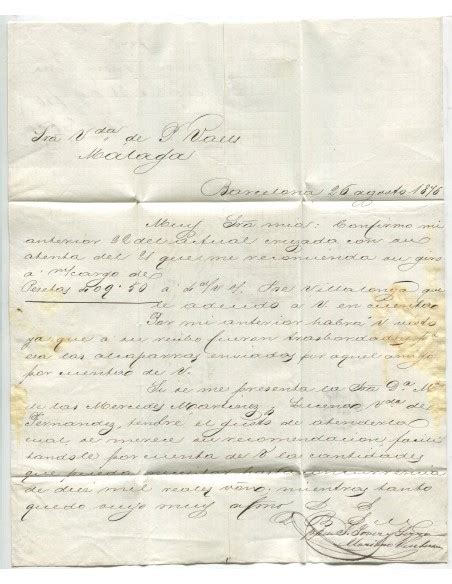 Sra Vda de P. Valls
Málaga
Barcelona 26 agosto 1876
Muy Sra mia: Confirmo mi
anterior 22 del actual cruzada con su
atenta del 21 que me recomienda su giro
a m/cargo de
Pesetas 409.50 á 4 d/v
de adeudo a V en cuenta
Por mi anterior habrá V visto
ya que a su recibo fueron trasbordadas
las alcaparras enviadas por aquel amigo
por cuenta de V.
Si se me presenta la Sra Da Ma
de las Mercedes Martinez Vda de
Fernandez, tendré el gusto de atenderla
cual se merece su recomendacion facili
tandole por cuenta de V la cantidades
que pueda
de diez mil reales vón, mientras tanto
quedo suyo muy afmo S. S.